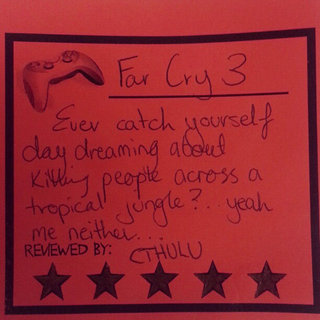 Far Cry 3
Ever catch yourself
day dreaming about
killing people across a
tropical jungle?.. yeah
me neither...
REVIEWED BY: CTHULU